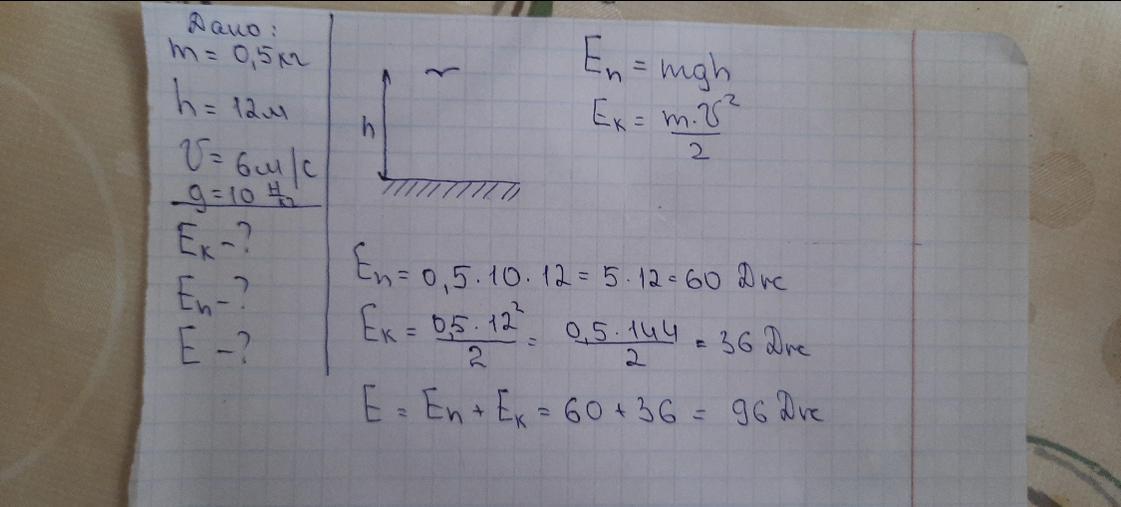 Дано:
m = 0,5 кг
h = 12 м
υ = 6 м/с
g = 10 Н/кг
Eк - ?
Eп - ?
E - ?
h
Eп = mgh
Eк = m·υ²/2
Eп = 0,5·10·12 = 5·12 = 60 Дж
Eк = 0,5·12²/2 = 0,5·144/2 = 36 Дж
E = Eп + Eк = 60 + 36 = 96 Дж